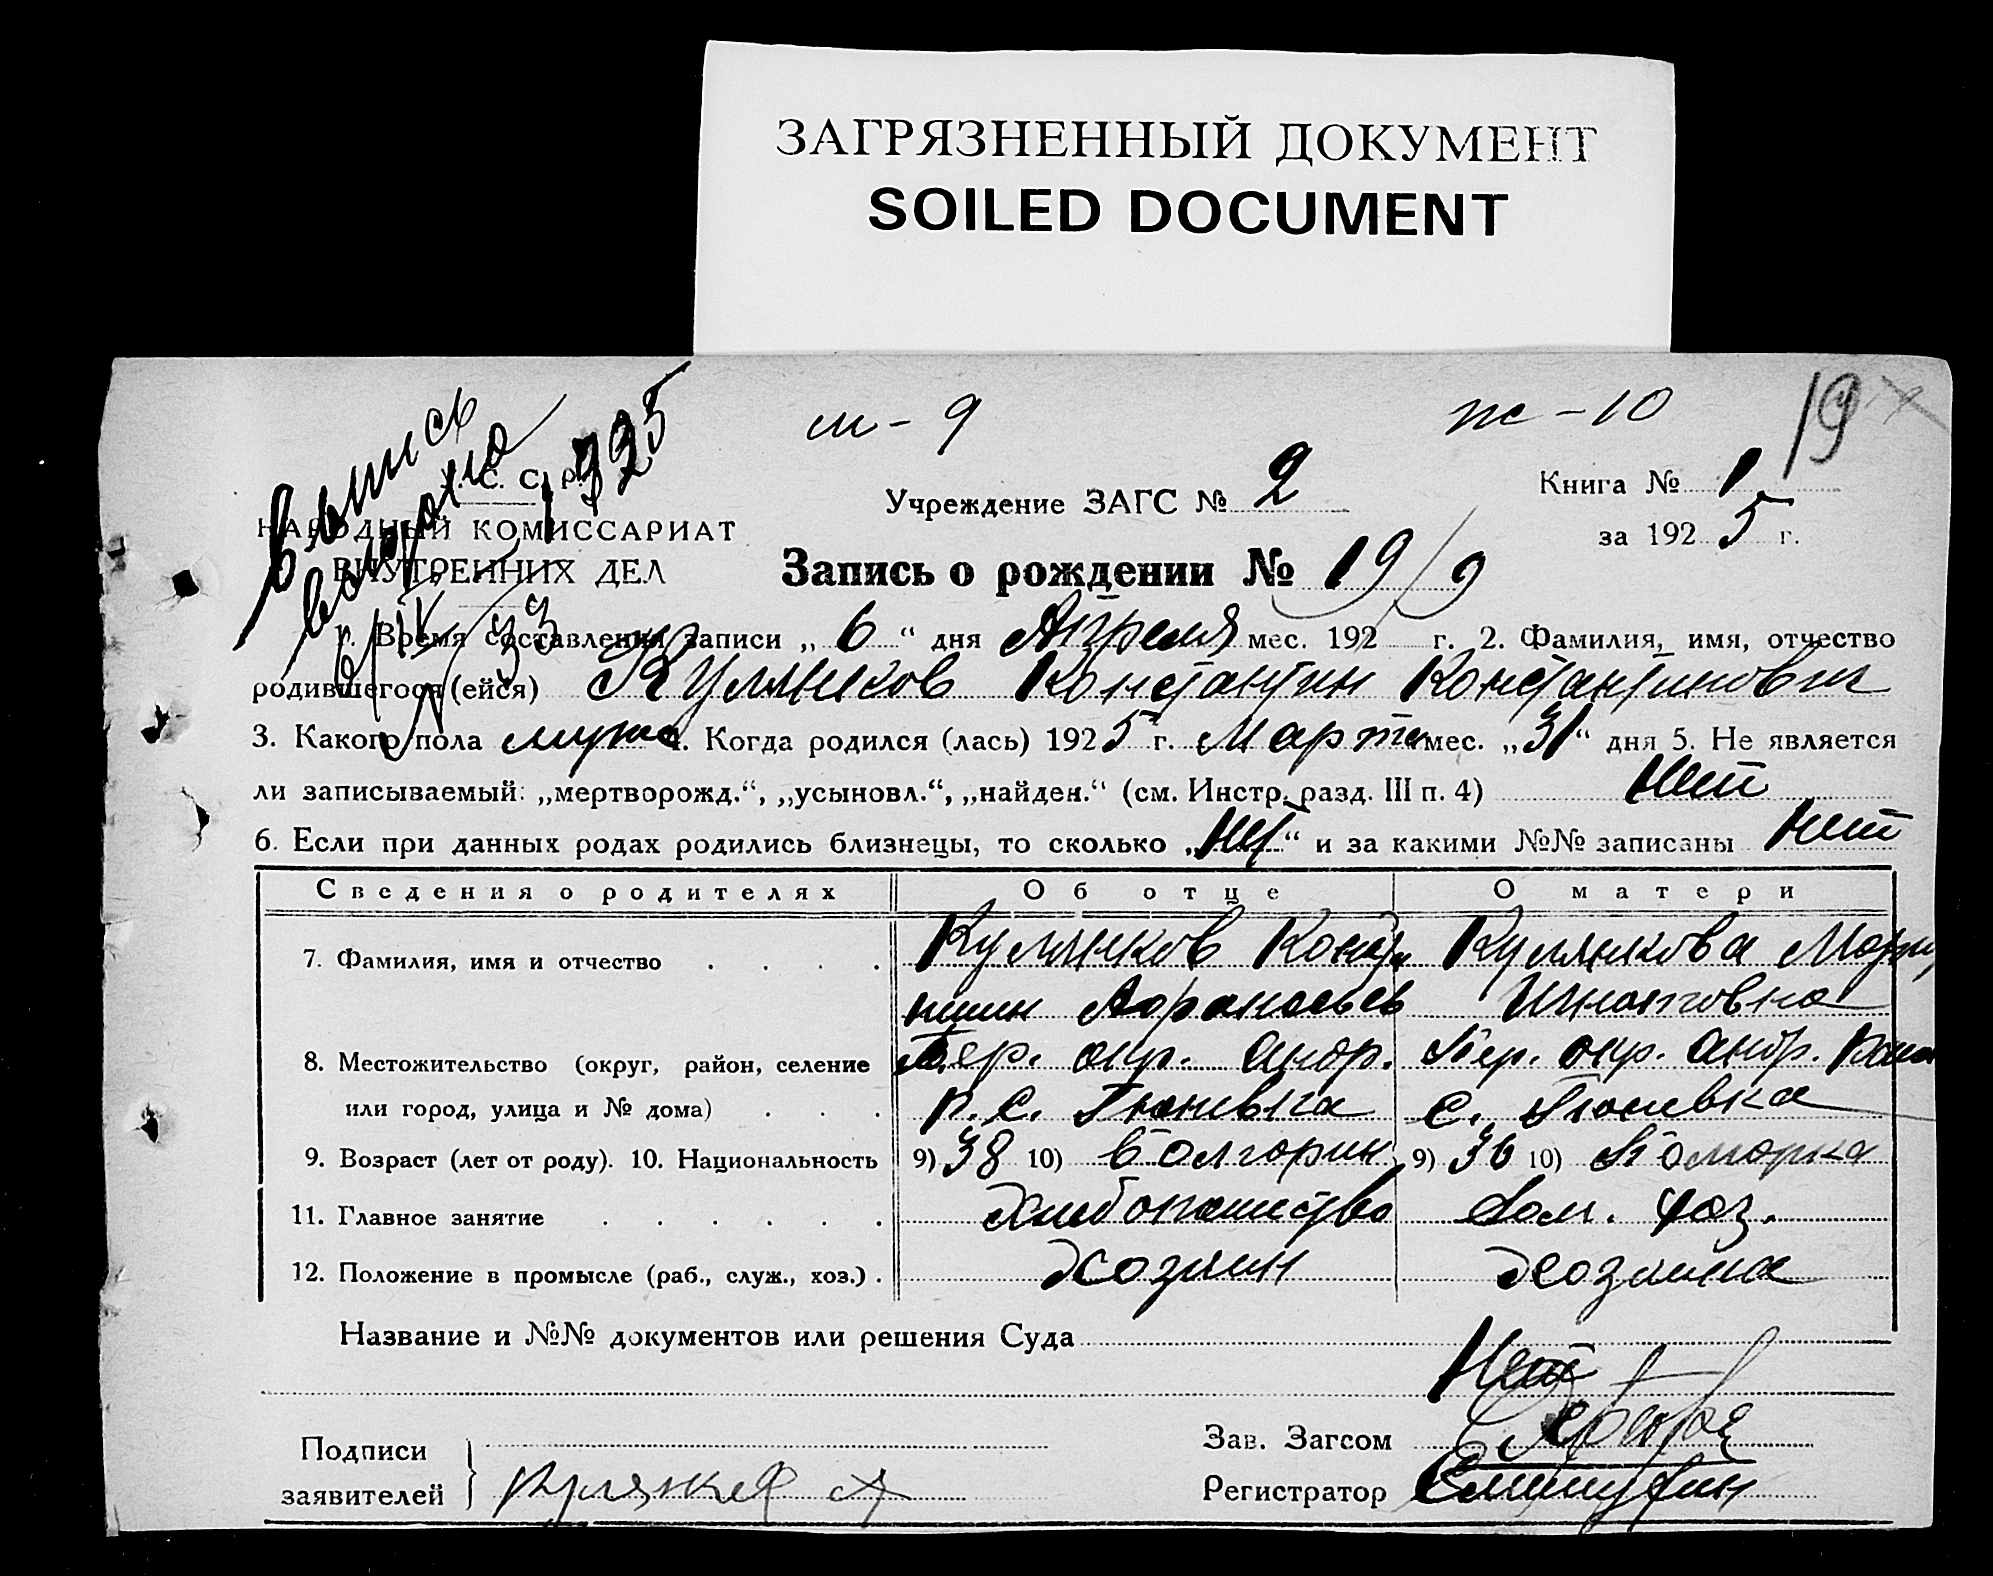 ЗАГРЯЗНЕННЫЙ ДОКУМЕНТ
SOILED DOCUMENT
м - 9
ж - 10
19
Выпись
выдана
С. С. Р.
НАРОДНЫЙ КОМИССАРИАТ
ВНУТРЕННИХ ДЕЛ
Учреждение ЗАГС № 2
Книга № 1
за 1925 г.
Запись о рождении № 19/9
1. Время составления записи „ 6 “ дня Апреля мес. 192 г. 2. Фамилия, имя, отчество
родившегося (ейся) Кулянков Константин Константинович
3. Какого пола муж 4. Когда родился (лась) 1925 г. Марта мес. „31“ дня 5. Не является
ли записываемый: „мертворожд.“, „усыновл.“, „найден.“ (см. Инстр. разд. III п. 4) Нет
6. Если при данных родах родились близнецы, то сколько „Нет“ и за какими №№ записаны Нет
Сведения о родителях Об отце О матери
7. Фамилия, имя и отчество . . . . Кулянков Конста Кулянкова Мари
8. Местожительство (округ, район, селение Бер. окр. Андр. Бер. окр. Андр.
или город, улица и № дома) . . . р. с. Гюневка с. Гюневка
9. Возраст (лет от роду). 10. Национальность 9) 38 10) болгарин 9) 36 10) Болгарка
11. Главное занятие . . . . . . Хлебопашество Дом. хоз.
12. Положение в промысле (раб., служ., хоз.) . Хозяин Хозяйка
Название и №№ документов или решения Суда
Нет
Подписи
заявителей
Зав. Загсом
Регистратор